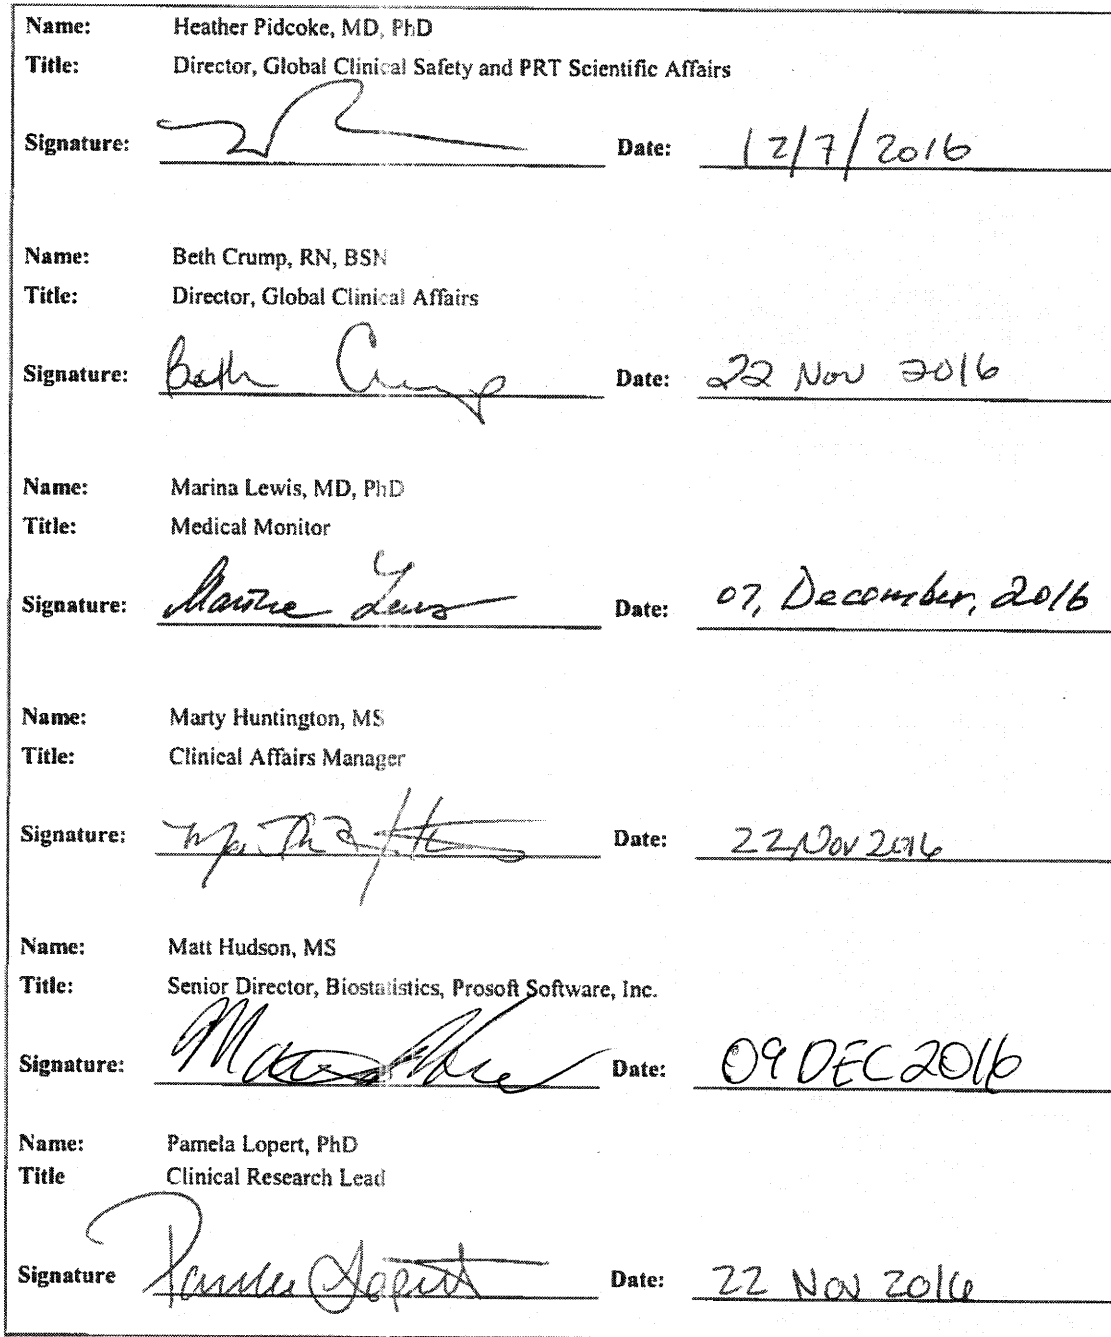 Name: Heather Pidcoke, MD, PhD
Title: Director, Global Clinical Safety and PRT Scientific Affairs
Signature: Date: 12/7/2016
Name: Beth Crump, RN, BSN
Title: Director, Global Clinical Affairs
Signature: Beth Crump Date: 22 Nov 2016
Name: Marina Lewis, MD, PhD
Title: Medical Monitor
Signature: Lewis Date: 07, December, 2016
Name: Marty Huntington, MS
Title: Clinical Affairs Manager
Signature: Date: 22 Nov 2016
Name: Matt Hudson, MS
Title: Senior Director, Biostatistics, Prosoft Software, Inc.
Signature: Date: 09 DEC 2016
Name: Pamela Lopert, PhD
Title Clinical Research Lead
Signature Pamela Lopert Date: 22 Nov 2016